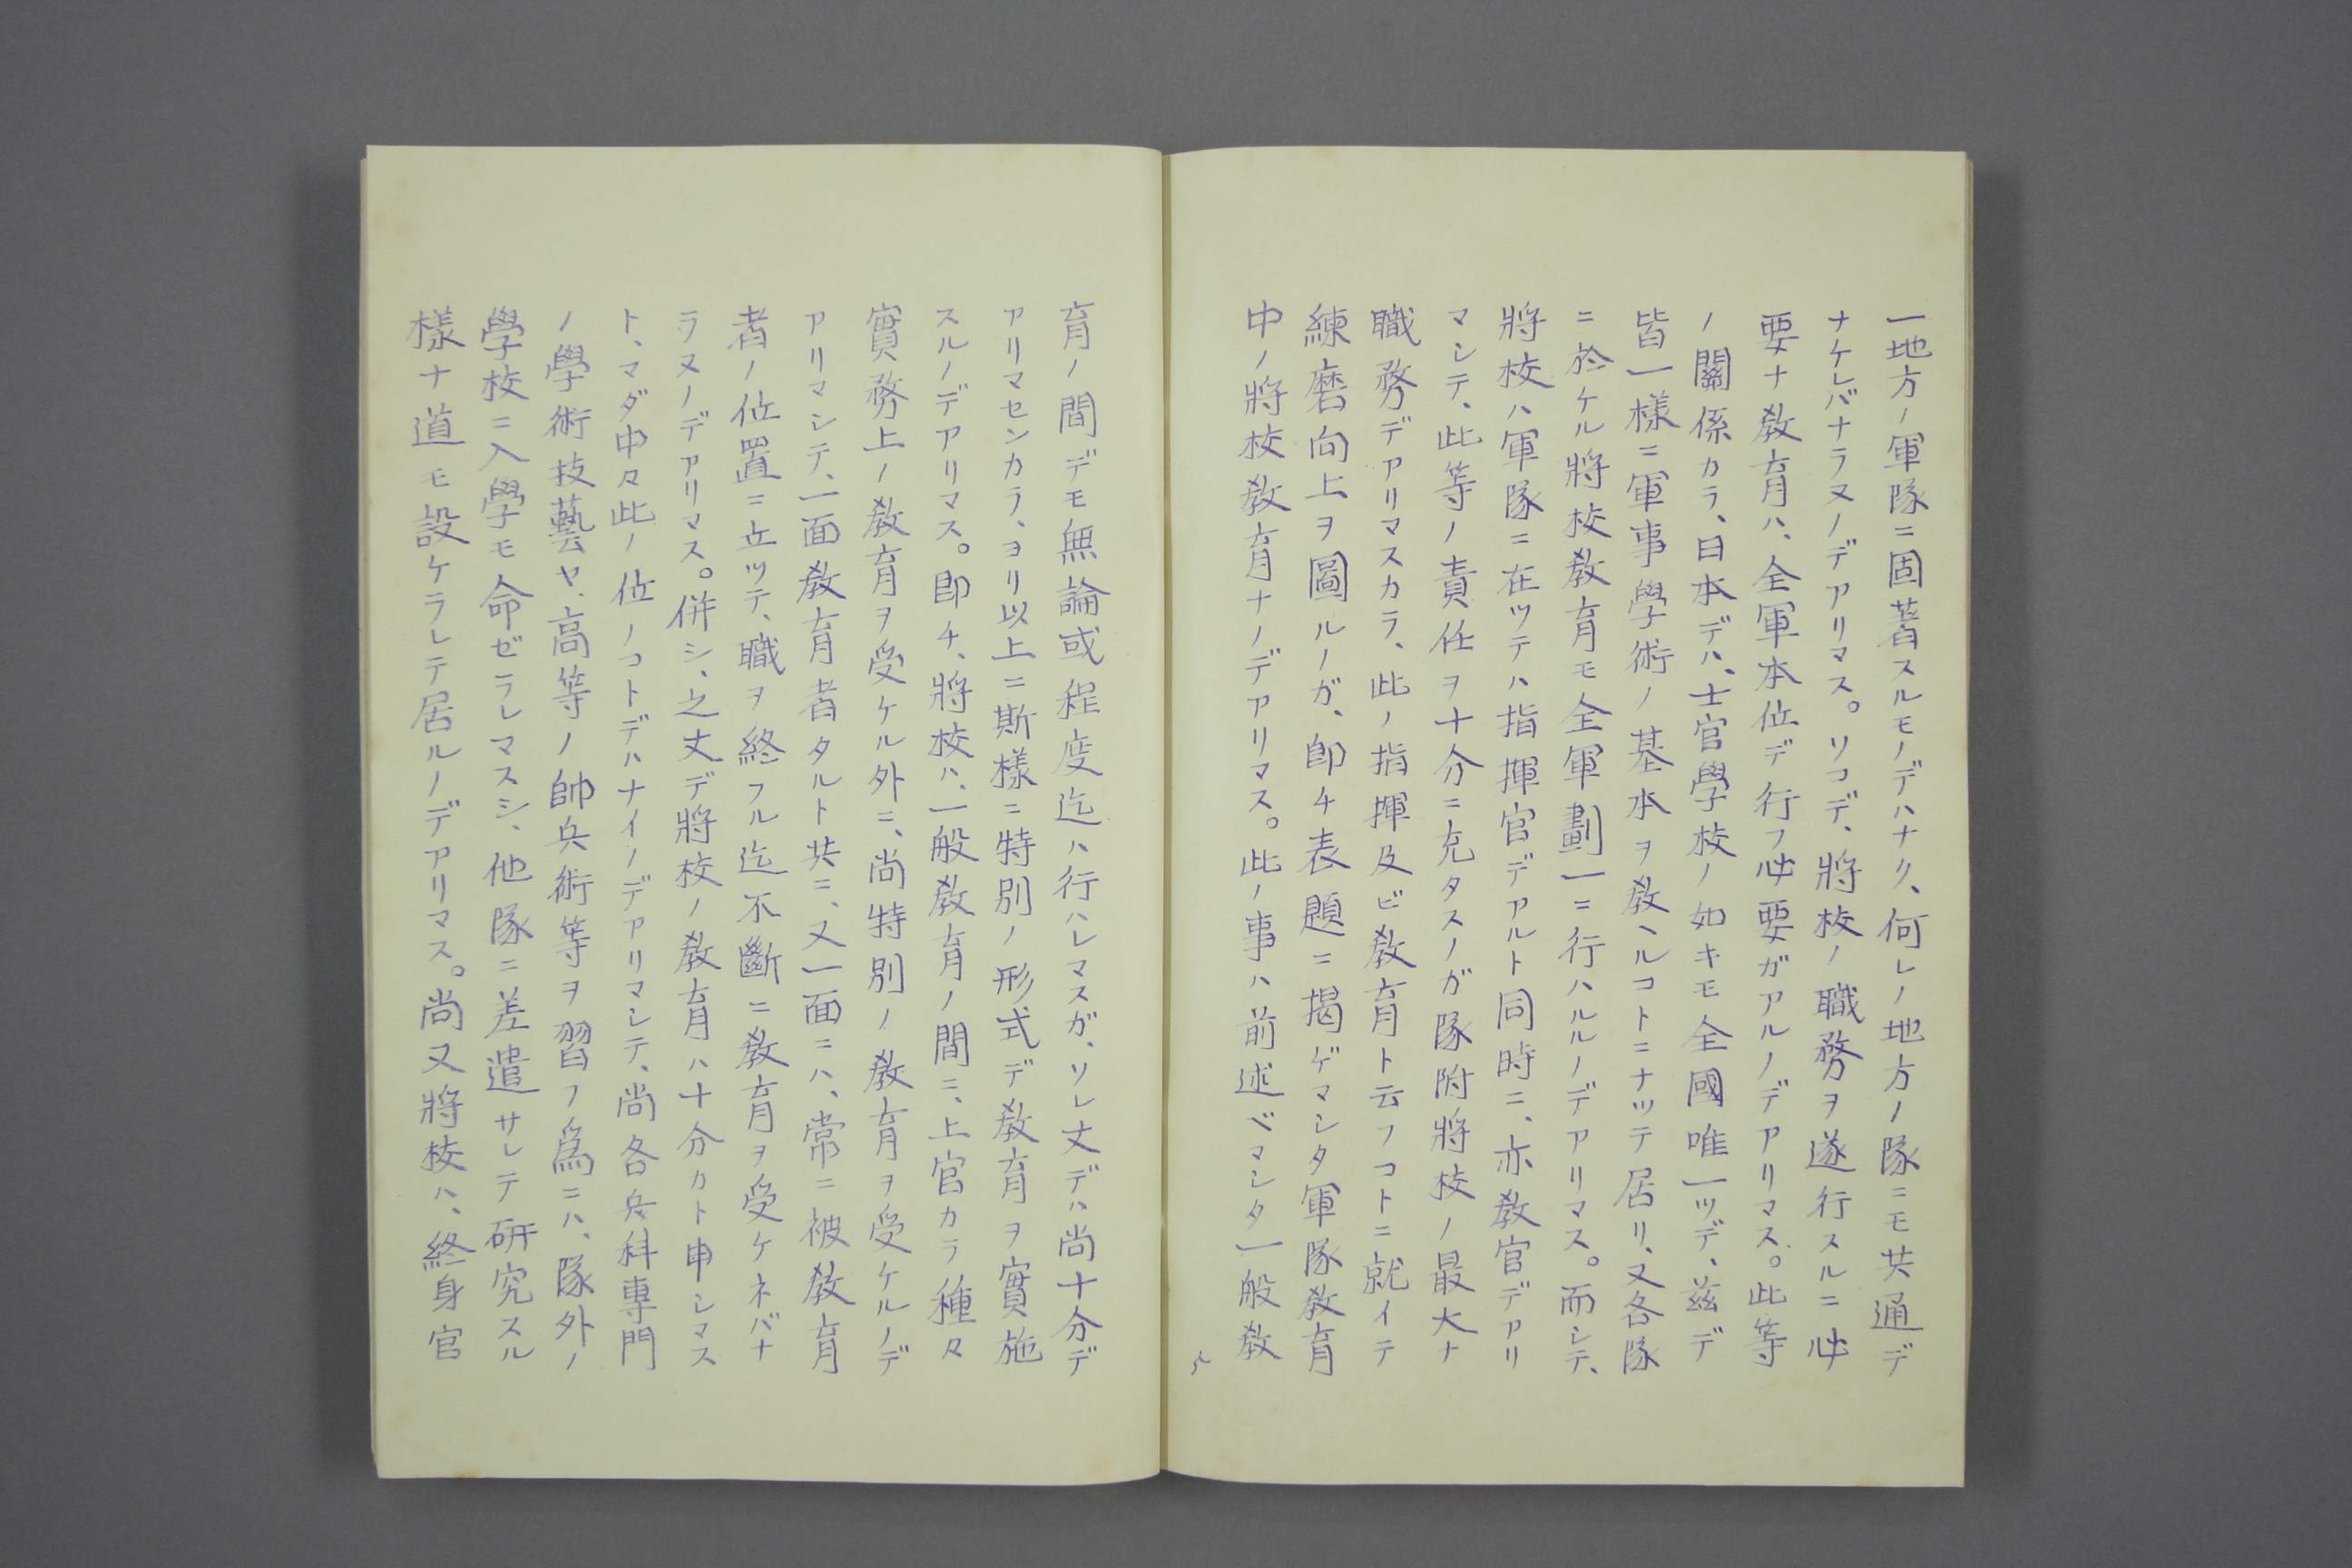 一地方ノ軍隊ニ固著スルモノデハナク、何レノ地方ノ隊ニモ共通デ
ナケレバナラヌノデアリマス。ソコデ、將校ノ職務ヲ遂行スルニ必
要ナ教育ハ、全軍本位デ行フ必要ガアルノデアリマス。此等
ノ關係カラ、日本デハ、士官學校ノ如キモ全國唯一ツデ、茲デ
皆一樣ニ軍事學術ノ基本ヲ教ヘルコトニナツテ居リ、又各隊
ニ於ケル將校教育モ全軍劃一ニ行ハルルノデアリマス。而シテ、
將校ハ軍隊ニ在ツテハ指揮官デアルト同時ニ、亦教官デアリ
マシテ、此等ノ責任ヲ十分ニ充タスノガ隊附將校ノ最大ナ
職務デアリマスカラ、此ノ指揮及ビ教育ト云フコトニ就イテ
練磨向上ヲ圖ルノガ、即チ表題ニ揭ゲマシタ軍隊教育
中ノ將校教育ナノデアリマス。此ノ事ハ前述ベマシタ一般教
育ノ間デモ無論或程度迄ハ行ハレマスガ、ソレ丈デハ尚十分デ
アリマセンカラ、ヨリ以上ニ斯樣ニ特別ノ形式デ教育ヲ實施
スルノデアリマス。即チ、將校ハ、一般教育ノ間ニ、上官カラ種々
實務上ノ教育ヲ受ケル外ニ、尚特別ノ教育ヲ受ケルノデ
アリマシテ、一面教育者タルト共ニ、又一面ニハ、常ニ被教育
者ノ位置ニ立ツテ、職ヲ終フル迄不斷ニ教育ヲ受ケネバナ
ラヌノデアリマス。併シ、之丈デ將校ノ教育ハ十分カト申シマス
ト、マダ中々此ノ位ノコトデハナイノデアリマシテ、尚各兵科專門
ノ學術技藝ヤ、高等ノ帥兵術等ヲ習フ爲ニハ、隊外ノ
學校ニ入學モ命ゼラレマスシ、他隊ニ差遣サレテ研究スル
樣ナ道モ設ケラレテ居ルノデアリマス。尚又將校ハ、終身官